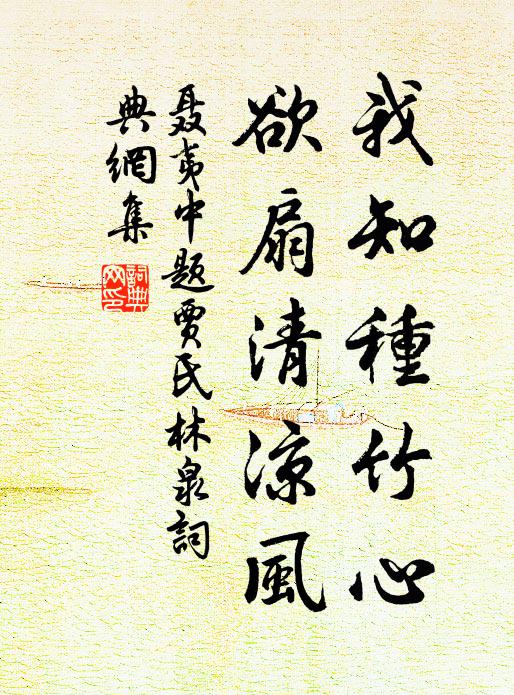 我知種竹心
欲扇清涼風
聶夷中題賈氏林泉詞
典網集
詞典
网印